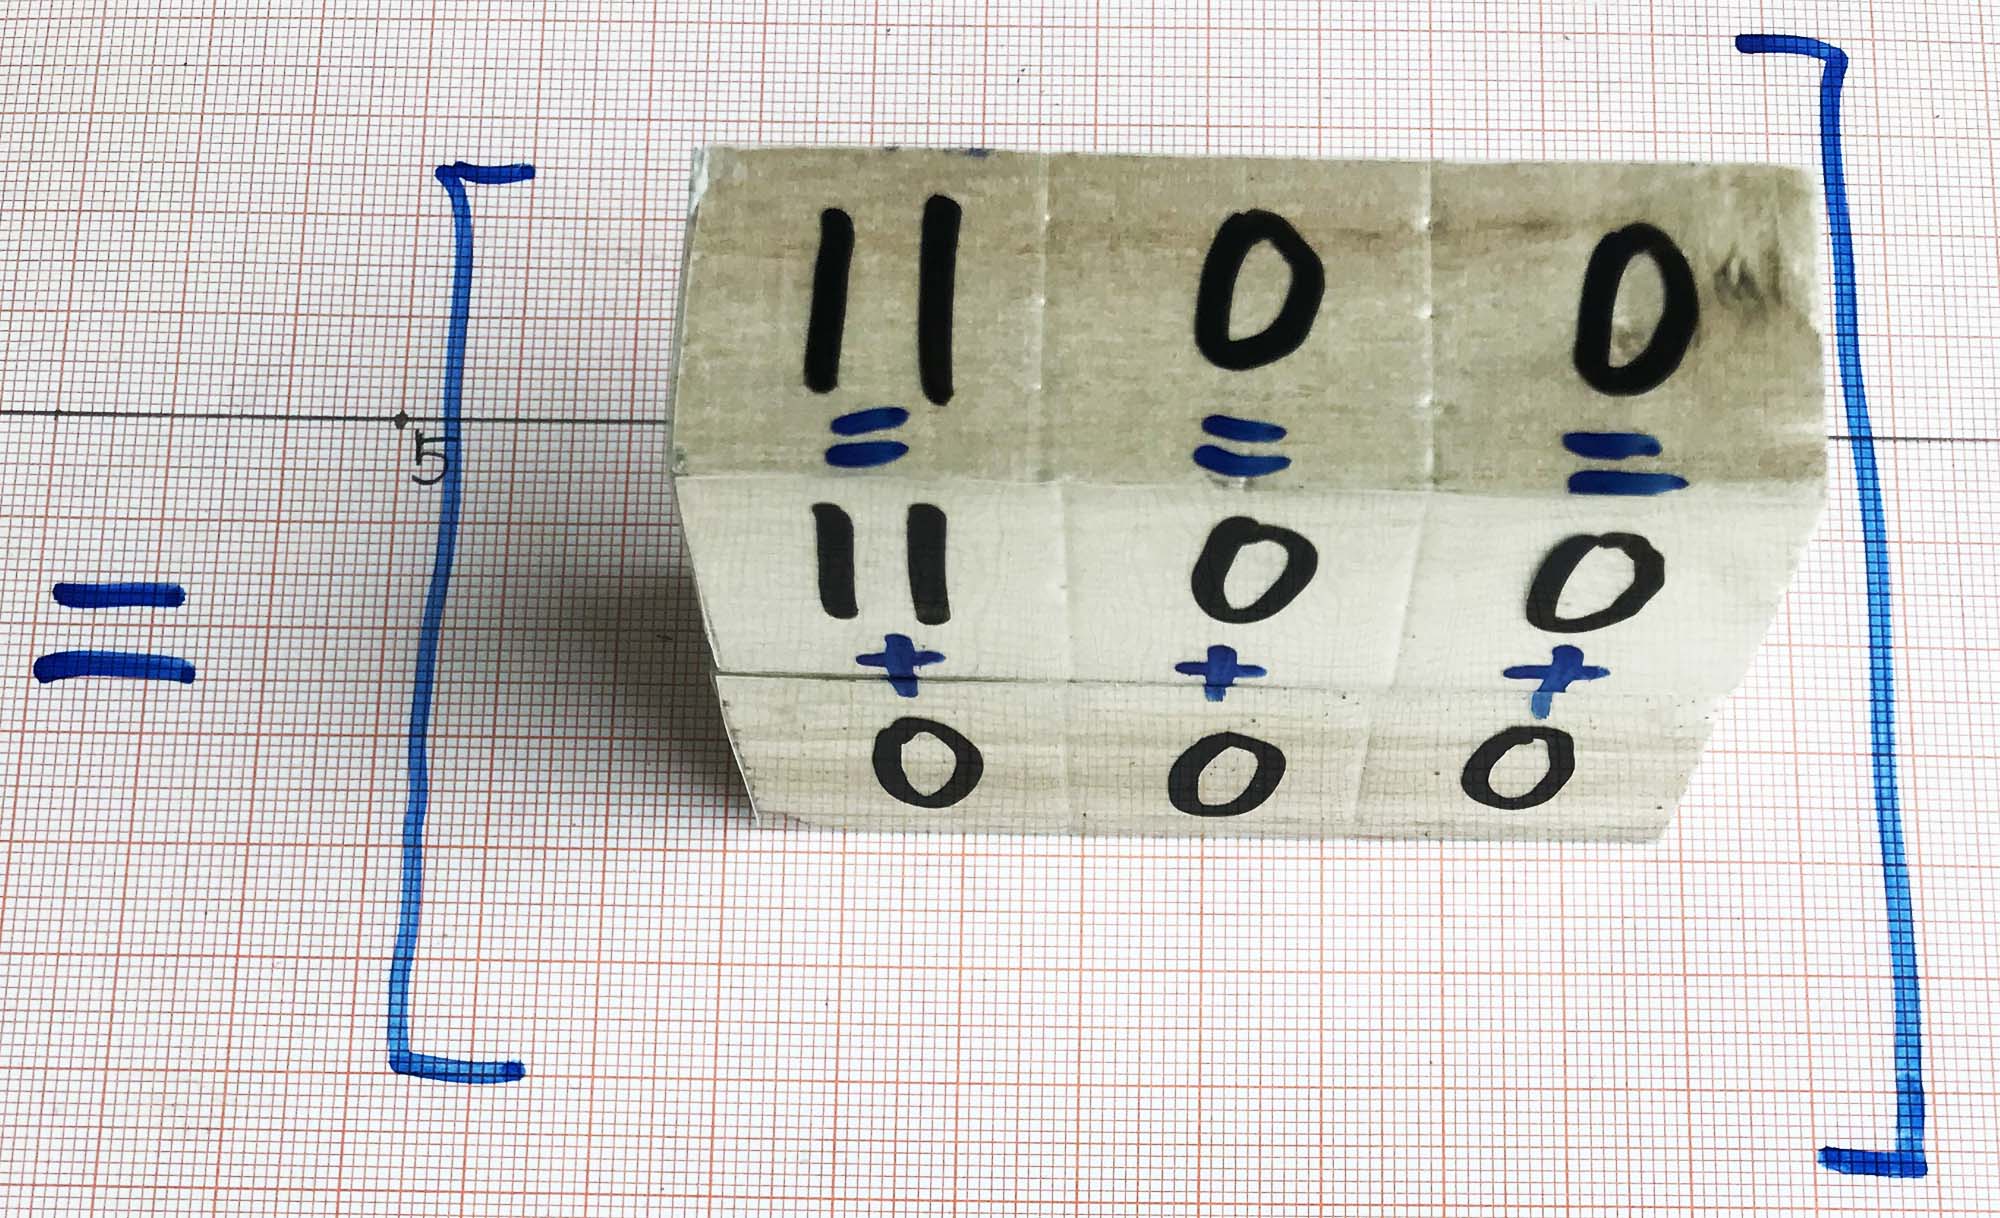 11 0 0
= = =
5
=
11 0 0
+ + +
0 0 0